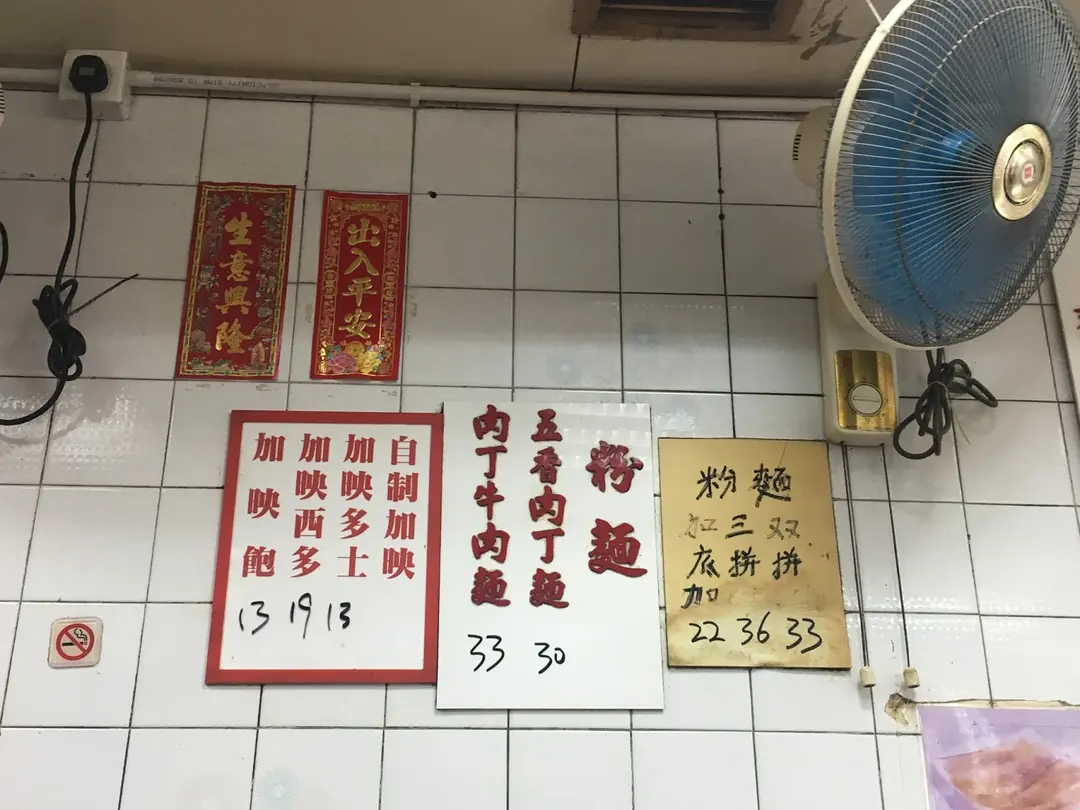 出入平安
生意興隆
自制加映
加映多士 13
加映西多 19
加映飽 13
粉麵
五香肉丁麵 30
肉丁牛肉麵 33
粉麵
双拼 33
三拼 36
加底加 22